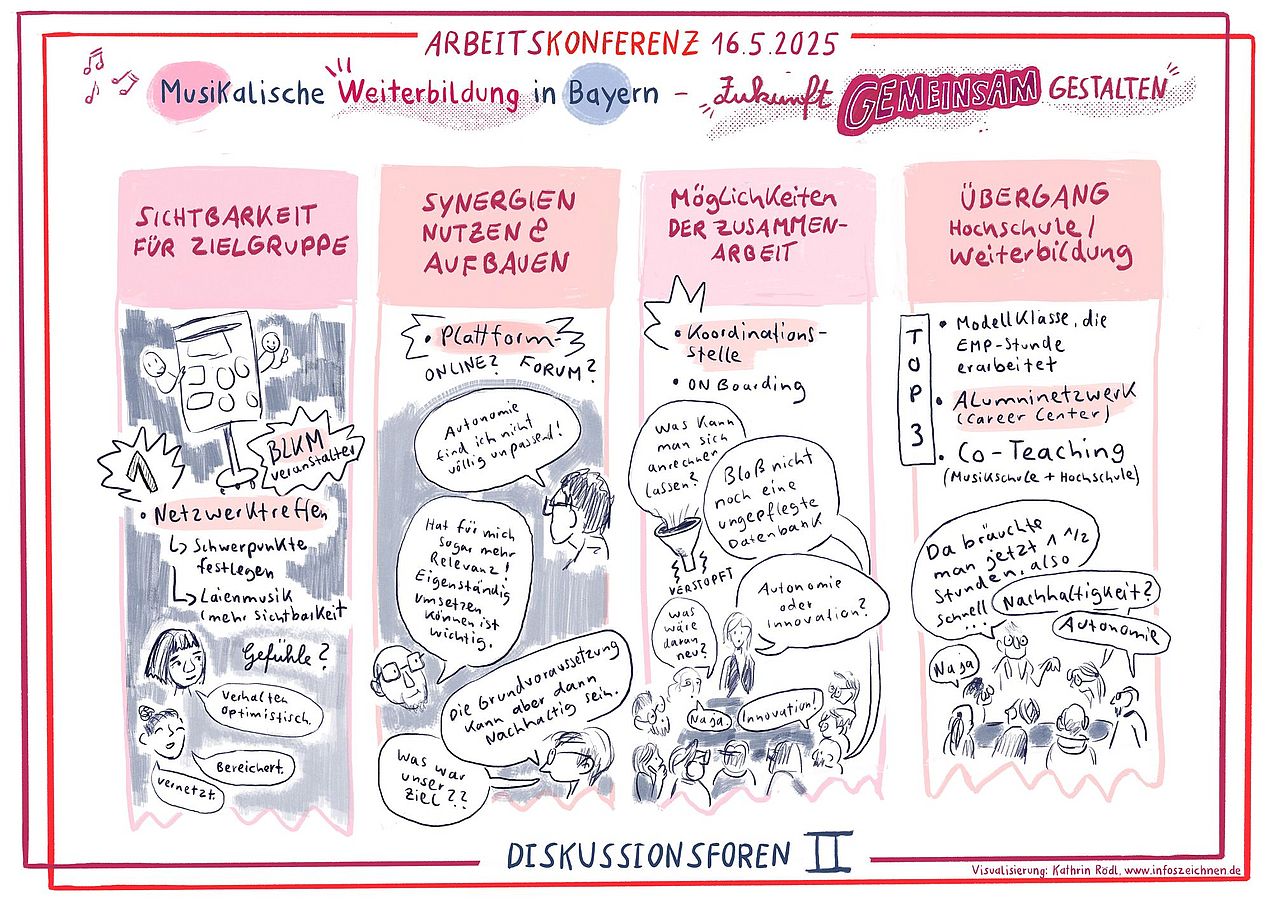 ARBEITSKONFERENZ 16.5.2025
Musikalische Weiterbildung in Bayern - Zukunft GEMEINSAM GESTALTEN
SICHTBARKEIT
FÜR ZIELGRUPPE
BLKM
veranstalter
1
• Netzwerktreffen
↳ Schwerpunkte
festlegen
↳ Laienmusik
(mehr Sichtbarkeit
Gefühle?
Verhalten
optimistisch.
Bereichert.
vernetzt.
SYNERGIEN
NUTZEN &
AUFBAUEN
• Plattform
ONLINE? FORUM?
Autonomie
find ich nicht
völlig unpassend!
Hat für mich
sogar mehr
Relevanz!
Eigenständig
umsetzen
können ist
wichtig.
Die Grundvoraussetzung
kann aber dann
Nachhaltig sein.
Was war
unser
Ziel??
Möglichkeiten
DER ZUSAMMEN-
ARBEIT
• Koordinations-
stelle
• ONBoarding
Was kann
man sich
anrechnen
lassen?
Bloß nicht
noch eine
ungepflegte
Datenbank
VERSTOPFT
Autonomie
oder
Innovation?
was
wäre
daran
neu?
Naja
Innovation!
ÜBERGANG
Hochschule/
Weiterbildung
TOP 3
• Modellklasse, die
EMP-Stunde
erarbeitet
• Alumninetzwerk
(Career Center)
• Co-Teaching
(Musikschule + Hochschule)
Da bräuchte
man jetzt 1 1/2
Stunden, also
schnell...!
Nachhaltigkeit?
Autonomie
Naja
DISKUSSIONSFOREN II
Visualisierung: Kathrin Rödl, www.infoszeichnen.de